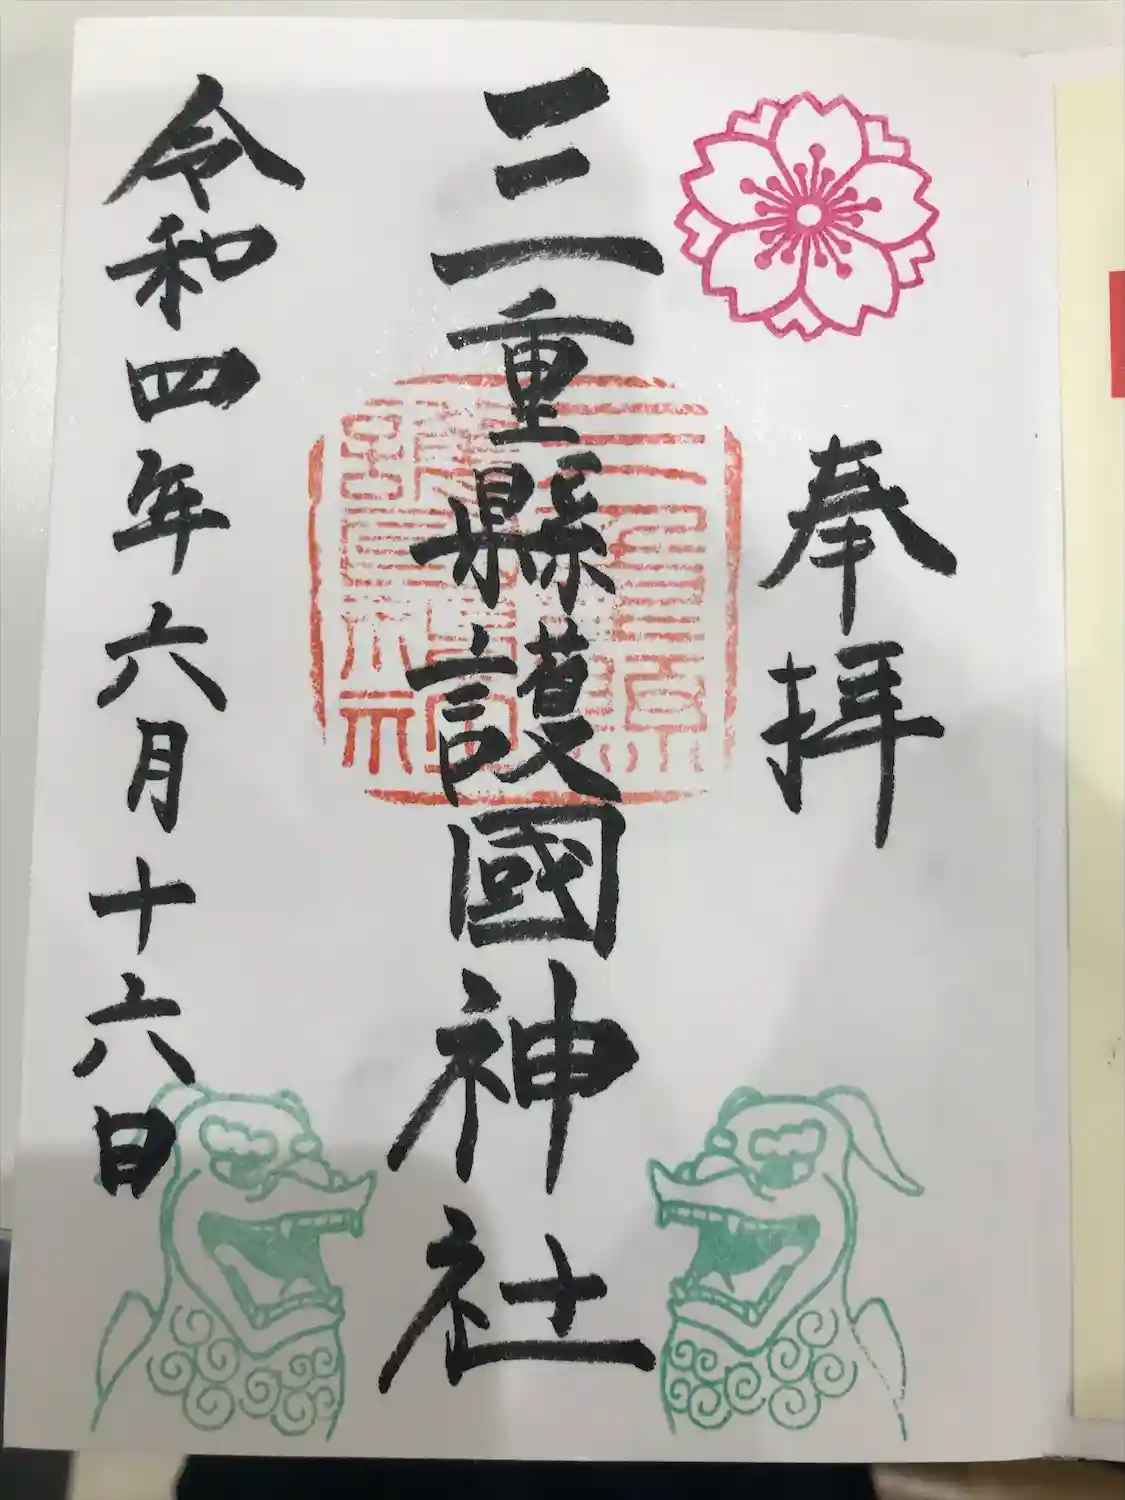 奉拝
三重縣護國神社
令和四年六月十六日